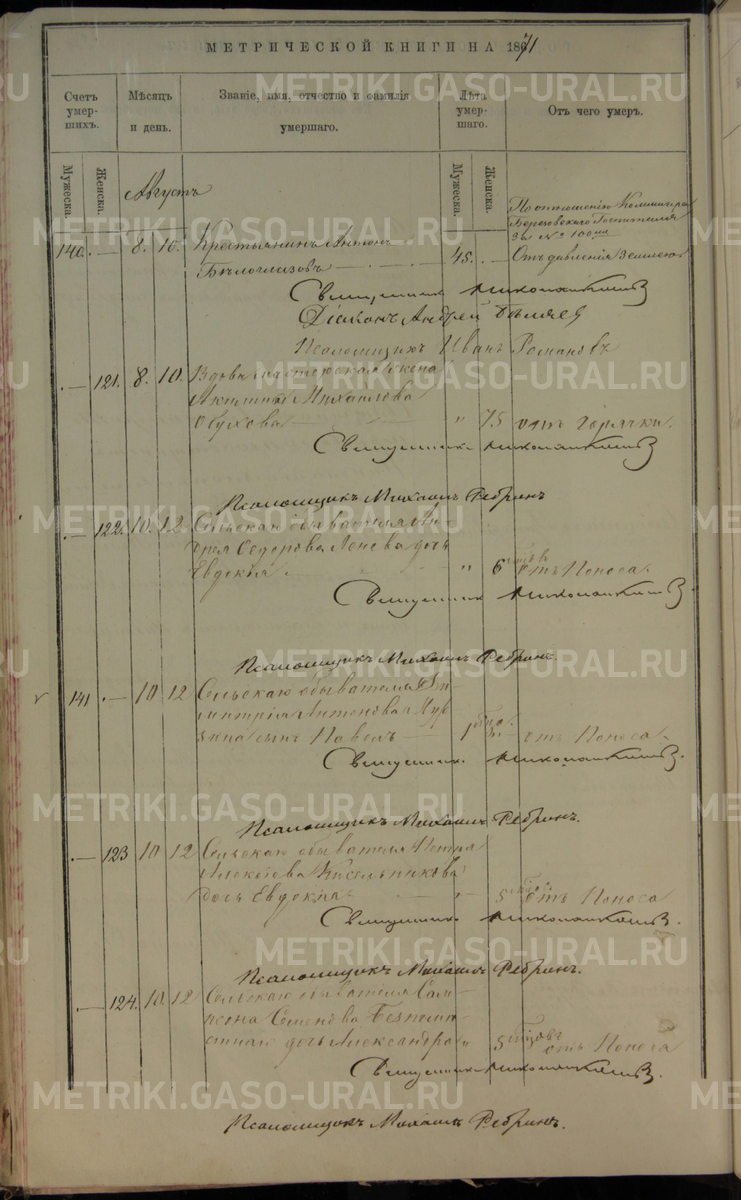 МЕТРИЧЕСКОЙ КНИГИ НА 1871
Счетъ умерших. Мѣсяцъ и день. Званіе, имя, отчество и фамилія умершаго. Лѣта умершаго. Отъ чего умеръ.
Мужеска. Женска. Мужеска. Женска.
Августъ
По отношенію
Березовскаго Госпиталя
за №
140. - 8. 10. Крестьянинъ Антонъ 45. - Отъ давленія землею
Бѣлоглазовъ
Священникъ
Діаконъ Андрей Бѣляев
Псаломщикъ Иванъ Романовъ
- 121. 8. 10. Вдова мастерская жена
Михаилова
Обухова " 75 отъ горячки.
Священникъ
Псаломщикъ Михаилъ Ребринъ
- 122. 10. 12 Сельскаго обывателя Ан-
дрея Федорова дочь
Евдокія " 6 отъ Поноса.
Священникъ
Псаломщикъ Михаилъ Ребринъ.
141 - 10 12 Сельскаго обывателя Ди-
митрія Антонова
сынъ Павелъ 1 отъ Поноса.
Священникъ
Псаломщикъ Михаилъ Ребринъ.
- 123 10 12 Сельскаго обывателя Петра
Алексѣева Кисельникова
дочь Евдокія 5 отъ Поноса
Священникъ
Псаломщикъ Михаилъ Ребринъ.
- 124. 10. 12 Сельскаго обывателя Сам-
псона Семенова
дочь Александра 5 отъ Поноса
Священникъ
Псаломщикъ Михаилъ Ребринъ.
METRIKI.GASO-URAL.RU